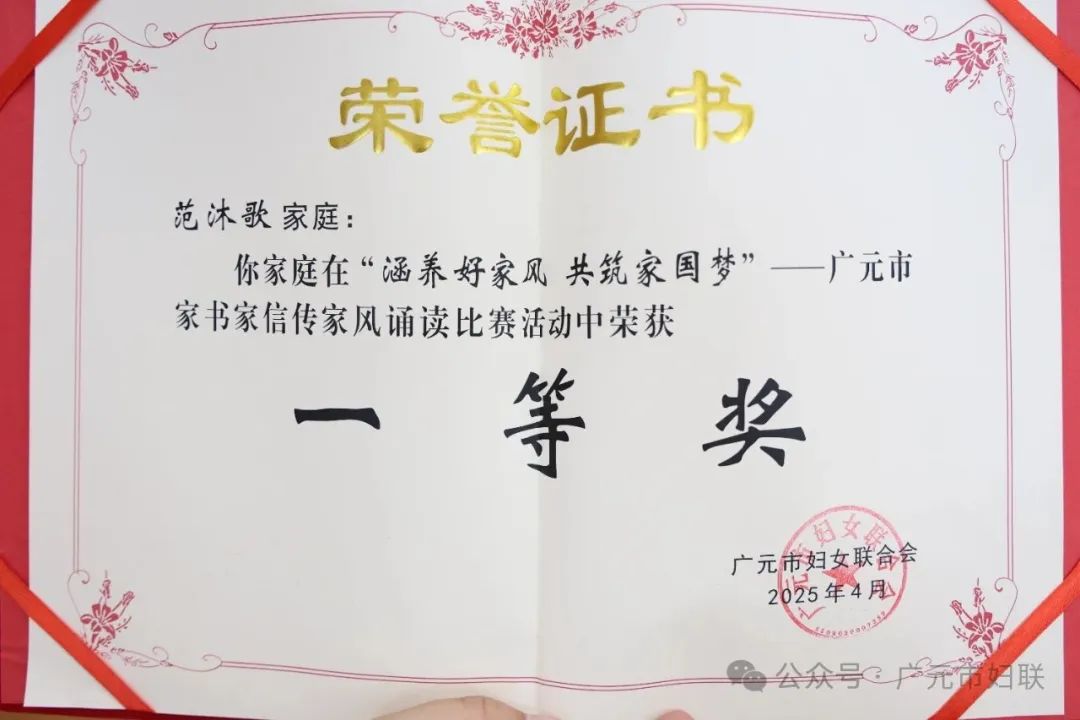 荣誉证书
范沐歌家庭：
你家庭在“涵养好家风 共筑家国梦”——广元市
家书家信传家风诵读比赛活动中荣获
一等奖
广元市妇女联合会
2025年4月
广元市妇女联合会
公众号·广元市妇联